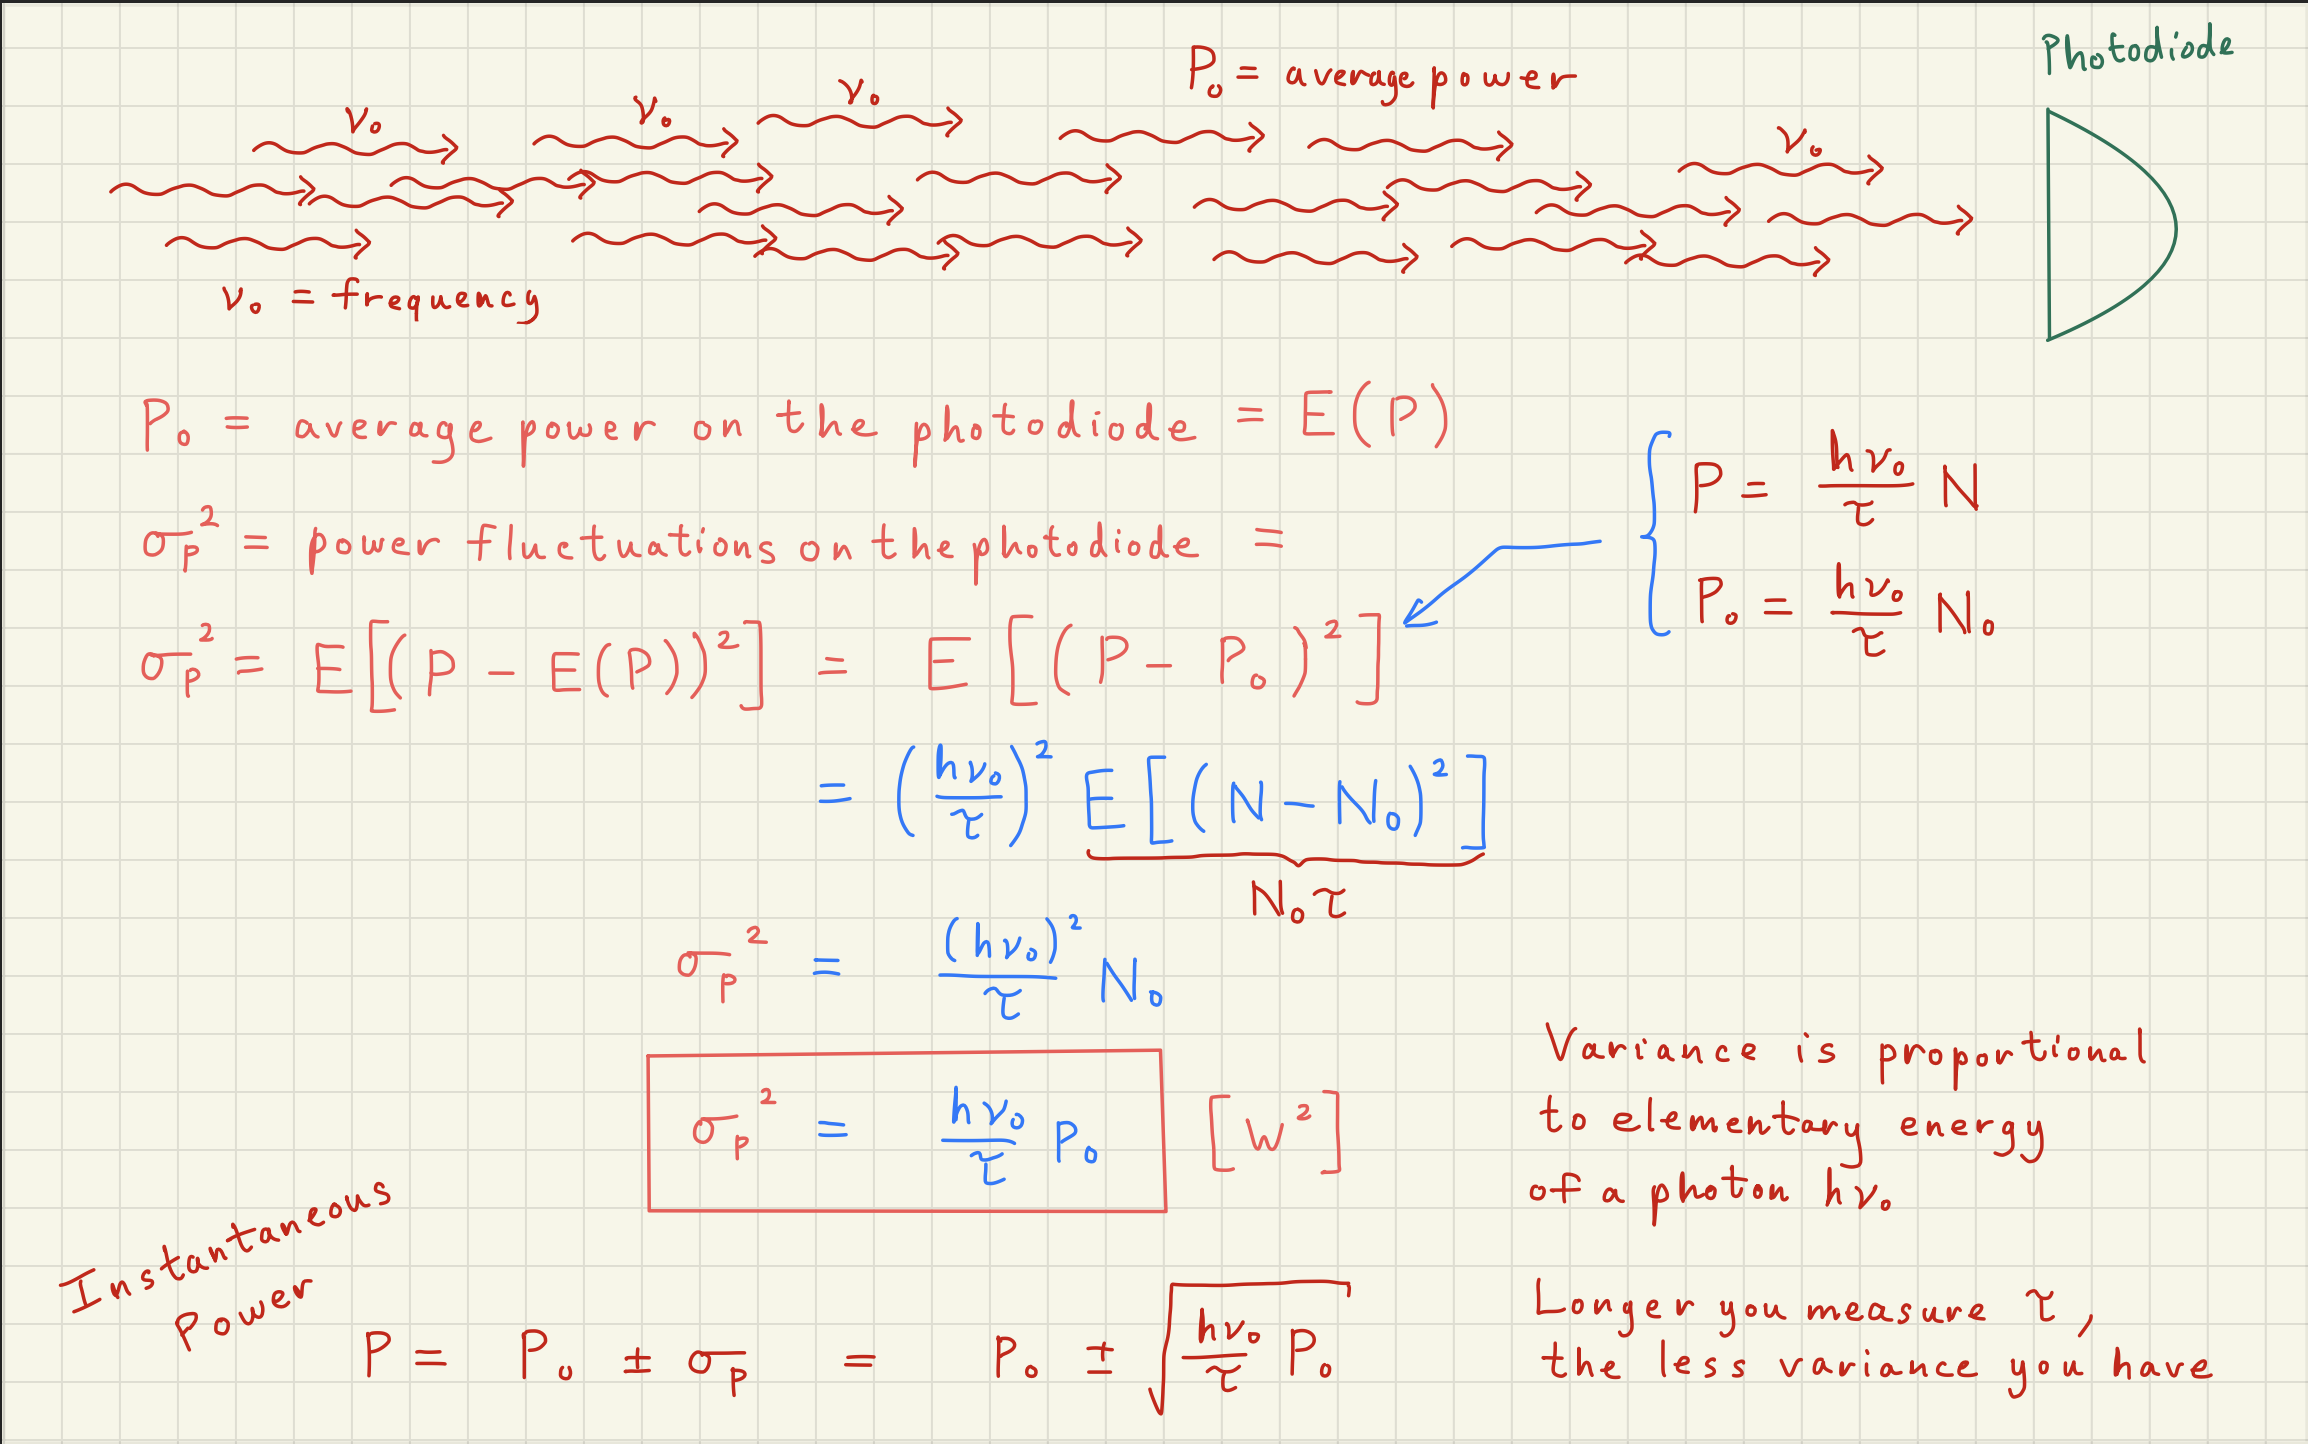 Photodiode
P₀ = average power
ν₀ ν₀ ν₀ ν₀
ν₀ = frequency
P₀ = average power on the photodiode = E(P)
σ_P² = power fluctuations on the photodiode =
P = hν₀/τ N
P₀ = hν₀/τ N₀
σ_P² = E[(P - E(P))²] = E[(P - P₀)²]
= (hν₀/τ)² E[(N - N₀)²]
N₀ τ
σ_P² = (hν₀)²/τ N₀
σ_P² = hν₀/τ P₀ [W²]
Variance is proportional
to elementary energy
of a photon hν₀
Instantaneous
Power
P = P₀ ± σ_P = P₀ ± √(hν₀/τ P₀)
Longer you measure τ,
the less variance you have